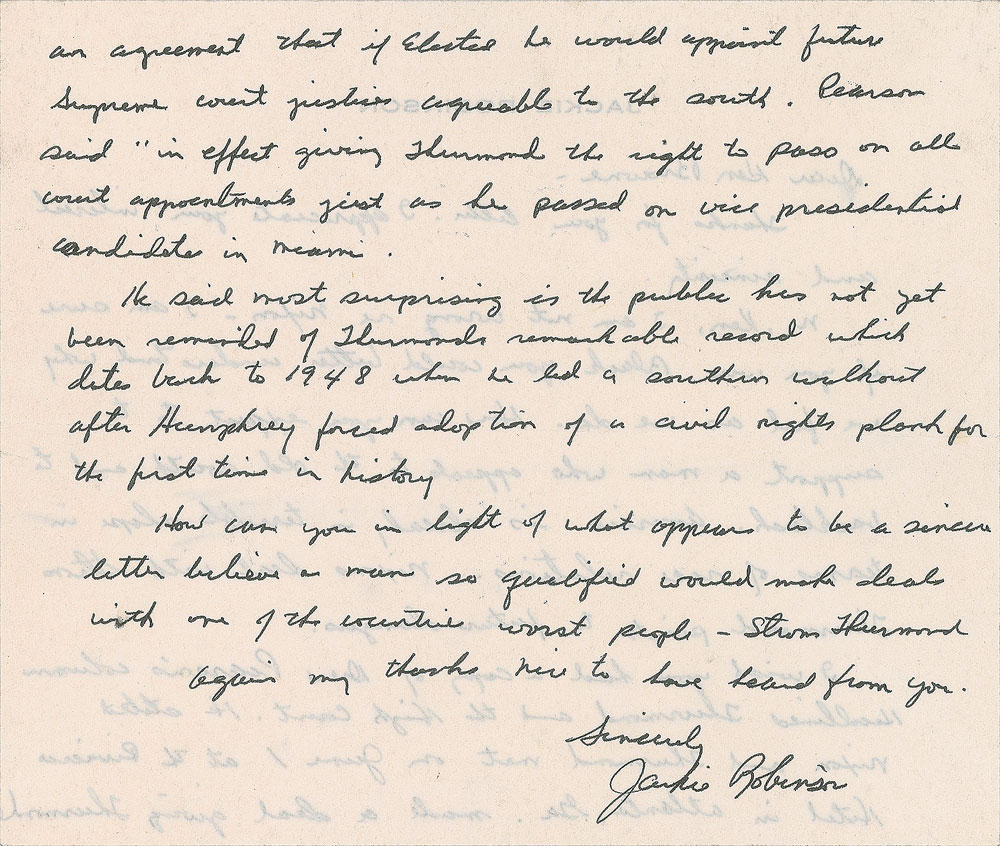 an agreement that if Elected he would appoint future
Supreme court justices agreeable to the south. Pearson
said "in effect giving Thurmond the right to pass on all
court appointments just as he passed on vice presidential
candidates in Miami.
He said most surprising is the public has not yet
been reminded of Thurmonds remarkable record which
dates back to 1948 when he led a southern walkout
after Humphrey forced adoption of a civil rights plank for
the first time in history
How can you in light of what appears to be a sincere
letter believe a man so qualified would make deals
with one of the countries worst people - Strom Thurmond
Again my thanks nice to have heard from you.
Sincerely
Jackie Robinson